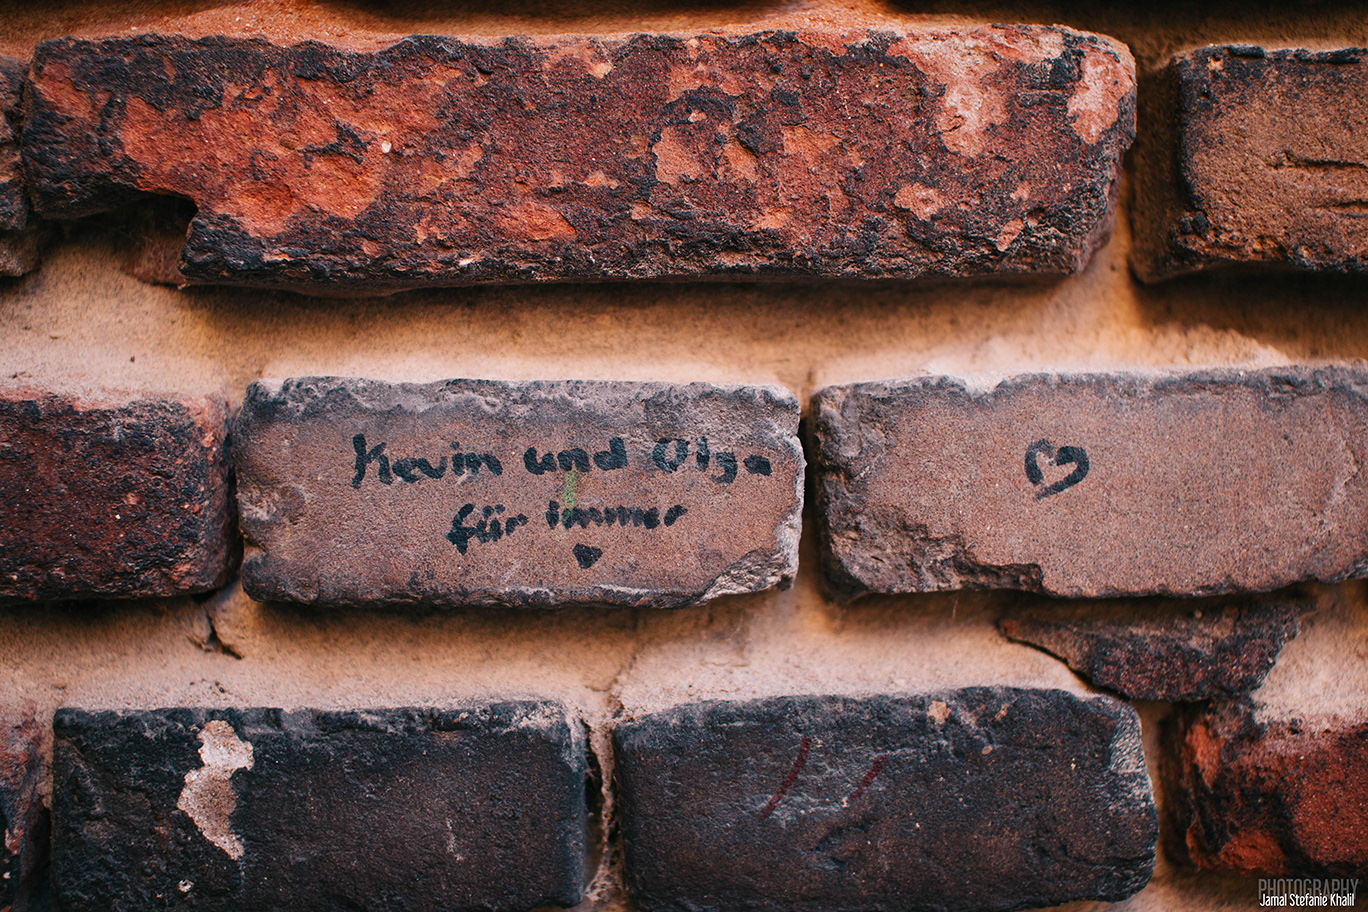 Kevin und Olga
für immer
PHOTOGRAPHY
Jamal Stefanie Khalil